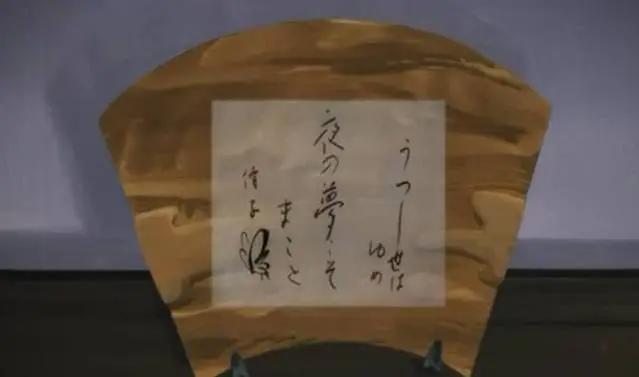 うつし世は
ゆめ
夜の夢こそ
まこと